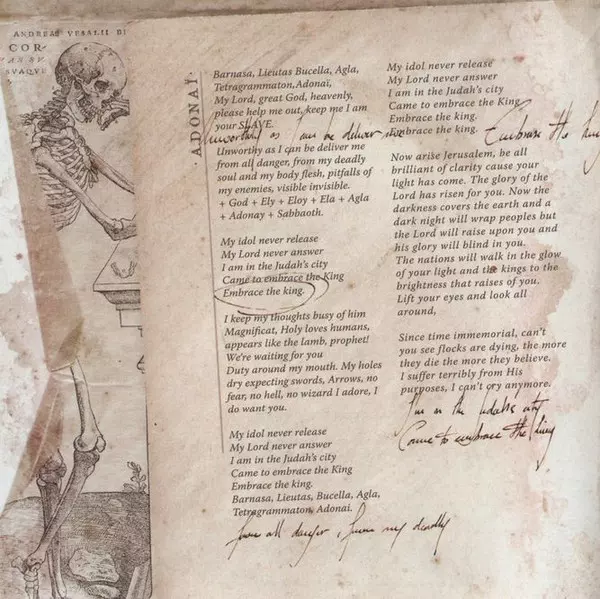 ANDREAE VESALII BR
COR-
SVAQVE
ADONAÏ
Barnasa, Lieutas Bucella, Agla,
Tetragrammaton,Adonaï,
My Lord, great God, heavenly,
please help me out, keep me I am
your SLAVE.
Unworthy as I can be deliver me
Unworthy as I can be deliver me
from all danger, from my deadly
soul and my body flesh, pitfalls of
my enemies, visible invisible.
+ God + Ely + Eloy + Ela + Agla
+ Adonay + Sabbaoth.
My idol never release
My Lord never answer
I am in the Judah's city
Came to embrace the King
Embrace the king.
I keep my thoughts busy of him
Magnificat, Holy loves humans,
appears like the lamb, prophet!
We're waiting for you
Duty around my mouth. My holes
dry expecting swords, Arrows, no
fear, no hell, no wizard I adore, I
do want you.
My idol never release
My Lord never answer
I am in the Judah's city
Came to embrace the King
Embrace the king.
Barnasa, Lieutas, Bucella, Agla,
Tetragrammaton, Adonai.
from all danger, from my deadly
My idol never release
My Lord never answer
I am in the Judah's city
Came to embrace the King
Embrace the king.
Embrace the king.
Embrace the king
Now arise Jerusalem, be all
brilliant of clarity cause your
light has come. The glory of the
Lord has risen for you. Now the
darkness covers the earth and a
dark night will wrap peoples but
the Lord will raise upon you and
his glory will blind in you.
The nations will walk in the glow
of your light and the kings to the
brightness that raises of you.
Lift your eyes and look all
around,
Since time immemorial, can't
you see flocks are dying, the more
they die the more they believe.
I suffer terribly from His
purposes, I can't cry anymore.
I'm in the Judah's city
Came to embrace the King